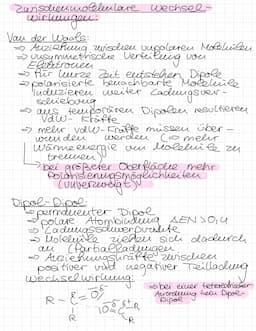 Zwischenmolekulare Wechsel-
wirkungen
Van der Waals:
→ Anziehung zwischen unpolaren Molekülen
→ unsymmetrische Verteilung von
Elektronen
→ für kurze Zeit entstehen Dipole
→ polarisierte benachbarte Moleküle
induzieren weiter Ladungsver-
schiebung
→ aus temporären Dipolen resultieren
VdW-Kräfte
→ mehr VdW-Kräfte müssen über-
wunden werden (⇒ mehr
Wärmeenergie um Moleküle zu
trennen)
↳ bei größerer Oberfläche mehr
Polarisierungsmöglichkeiten
(unverzweigt)
Dipol-Dipol:
↳ permanenter Dipol
→ polare Atombindung ΔEN > 0,4
→ Ladungsschwerpunkte
→ Moleküle ziehen sich dadurch
an (Partialladungen)
→ Anziehungskräfte zwischen
positiver und negativer Teilladung
Wechselwirkung
→ bei einer tetraedrischen
Anordnung kein Dipol-
Dipol
R - C = O
R